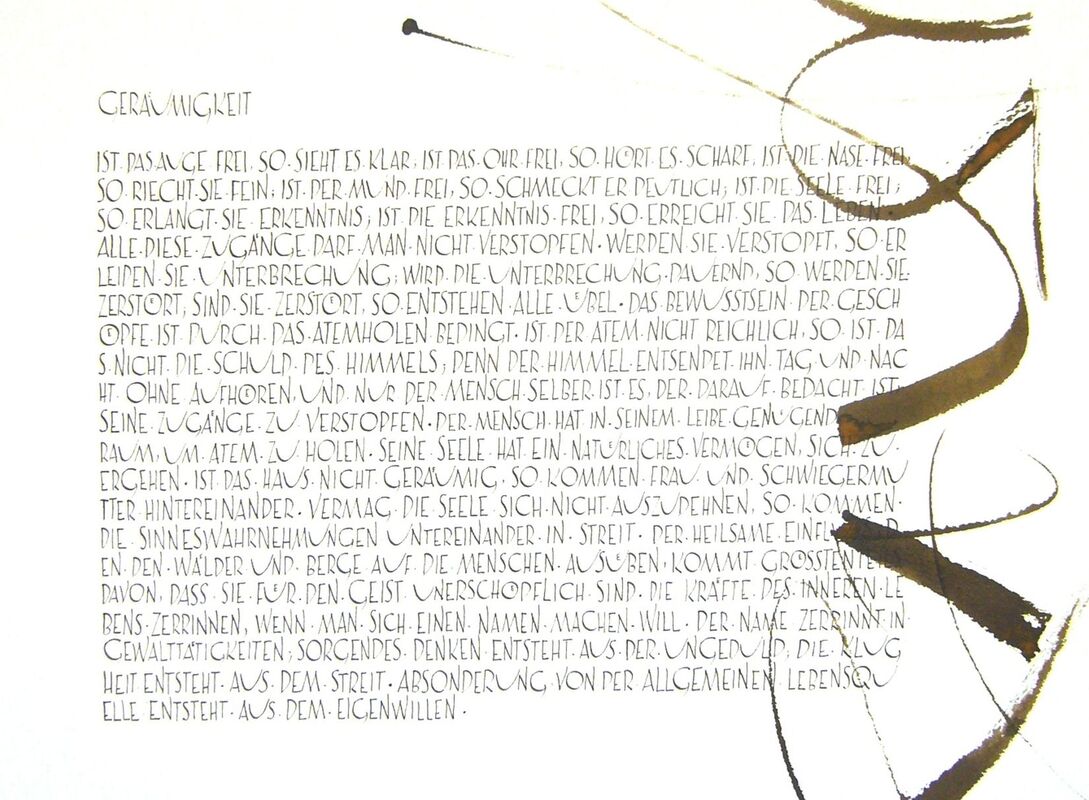 GERÄUMIGKEIT
IST DAS AUGE FREI, SO·SIEHT·ES·KLAR; IST·DAS·OHR·FREI, SO·HÖRT·ES·SCHARF, IST·DIE·NASE·FREI,
SO·RIECHT·SIE·FEIN; IST·DER·MUND·FREI, SO·SCHMECKT ER DEUTLICH; IST·DIE·SEELE·FREI;
SO·ERLANGT·SIE·ERKENNTNIS; IST·DIE·ERKENNTNIS·FREI, SO·ERREICHT·SIE·DAS·LEBEN·
ALLE·DIESE·ZUGÄNGE·DARF·MAN·NICHT·VERSTOPFEN·WERDEN·SIE·VERSTOPFT, SO·ER
LEIDEN·SIE·UNTERBRECHUNG; WIRD·DIE·UNTERBRECHUNG·DAUERND, SO·WERDEN·SIE·
ZERSTÖRT; SIND·SIE·ZERSTÖRT, SO·ENTSTEHEN·ALLE·ÜBEL·DAS·BEWUSSTSEIN·DER·GESCH
ÖPFE·IST·DURCH·DAS·ATEMHOLEN·BEDINGT·IST·DER·ATEM·NICHT·REICHLICH, SO·IST·DA
S·NICHT·DIE·SCHULD·DES·HIMMELS; DENN·DER·HIMMEL·ENTSENDET·IHN·TAG·UND·NAC
HT·OHNE·AUFHÖREN, UND·NUR·DER·MENSCH·SELBER·IST·ES, DER·DARAUF·BEDACHT·IST·
SEINE·ZUGÄNGE·ZU·VERSTOPFEN·DER·MENSCH·HAT·IN·SEINEM·LEIBE·GENÜGEND
RAUM, UM·ATEM·ZU·HOLEN·SEINE·SEELE·HAT·EIN·NATÜRLICHES·VERMÖGEN, SICH·ZU·
ERGEHEN·IST·DAS·HAUS·NICHT·GERÄUMIG, SO·KOMMEN·FRAU·UND·SCHWIEGERMU
TTER·HINTEREINANDER·VERMAG·DIE·SEELE·SICH·NICHT·AUSZUDEHNEN, SO·KOMMEN·
DIE·SINNESWAHRNEHMUNGEN·UNTEREINANDER·IN·STREIT·DER·HEILSAME
EN·DEN·WÄLDER·UND·BERGE·AUF·DIE·MENSCHEN·AUSÜBEN, KOMMT·GRÖSSTENTEILS
DAVON, DASS·SIE·FÜR·DEN·GEIST·UNERSCHÖPFLICH·SIND·DIE·KRÄFTE·DES·INNEREN·LE
BENS·ZERRINNEN, WENN·MAN·SICH·EINEN·NAMEN·MACHEN·WILL·DER·NAME·ZERRINNT·IN
GEWALTTÄTIGKEITEN; SORGENDES·DENKEN·ENTSTEHT·AUS·DER·UNGEDULD; DIE·KLUG
HEIT·ENTSTEHT·AUS·DEM·STREIT·ABSONDERUNG·VON·DER·ALLGEMEINEN·LEBENSQU
ELLE·ENTSTEHT·AUS·DEM·EIGENWILLEN·